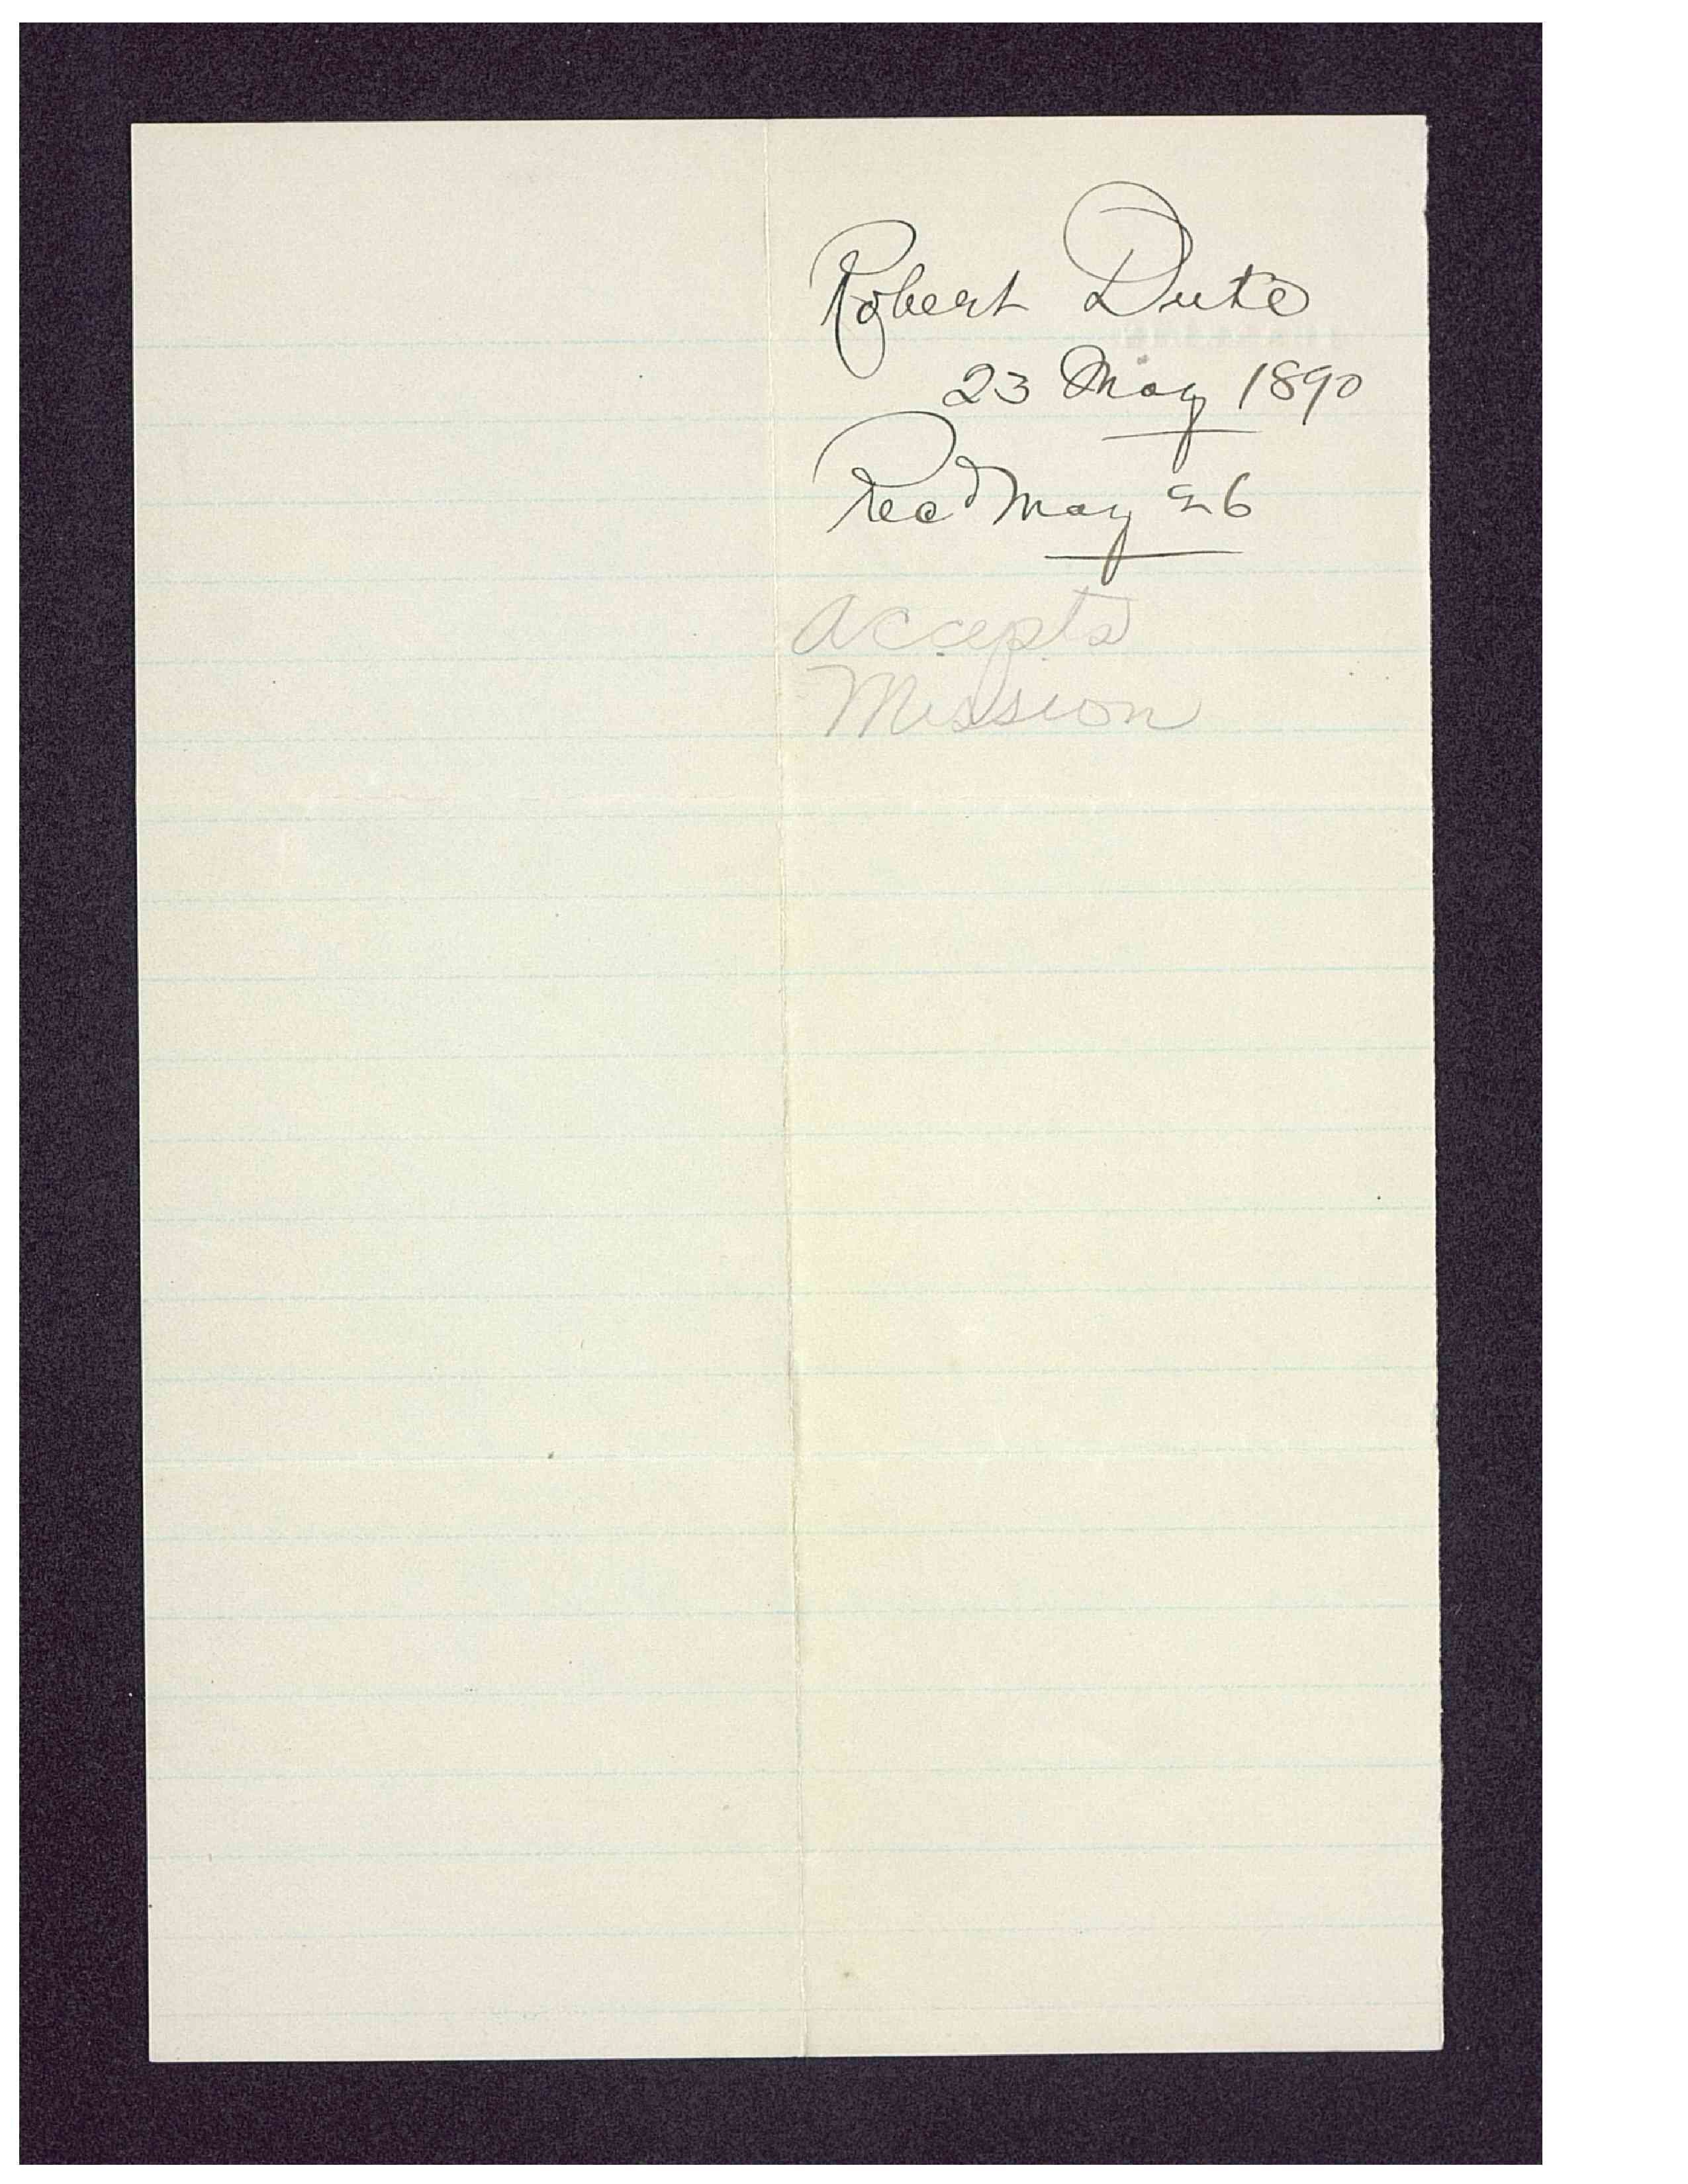 Robert Duke
23 May 1890
Recd May 26
Accepts
Mission